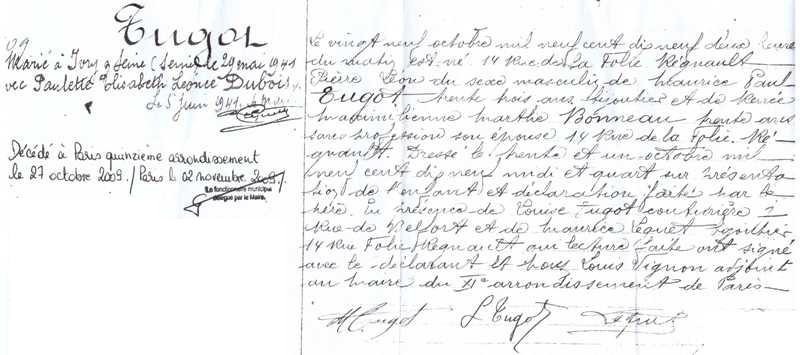 Tugot
99
Marié à Ivry s/ Seine (Seine) le 29 mai 1941
avec Paulette Elisabeth Léonce Dubois.
Le 5 Juin 1941
Décédé à Paris quinzième arrondissement
le 27 octobre 2009. / Paris le 02 novembre 2009
Le fonctionnaire municipal
délégué par le Maire,
Le vingt neuf octobre mil neuf cent dix neuf deux heures
du matin est né 14 Rue de La Folie Régnault
Pierre Léon du sexe masculin de Maurice Paul
Tugot trente trois ans bijoutier et de Renée
Maximilienne Marthe Bonneau trente ans
sans profession son épouse 14 Rue de la Folie. Ré-
gnault. Dressé le trente et un octobre mil
neuf cent dix neuf midi et quart sur présenta-
tion de l'enfant et déclaration faite par le
père. En présence de Louise Tugot couturière
Rue de Belfort et de Maurice bijoutier
14 Rue Folie Régnault qui lecture faite ont signé
avec le déclarant et nous Louis Vignon adjoint
au maire du XIe arrondissement de Paris—
M Tugot L Tugot